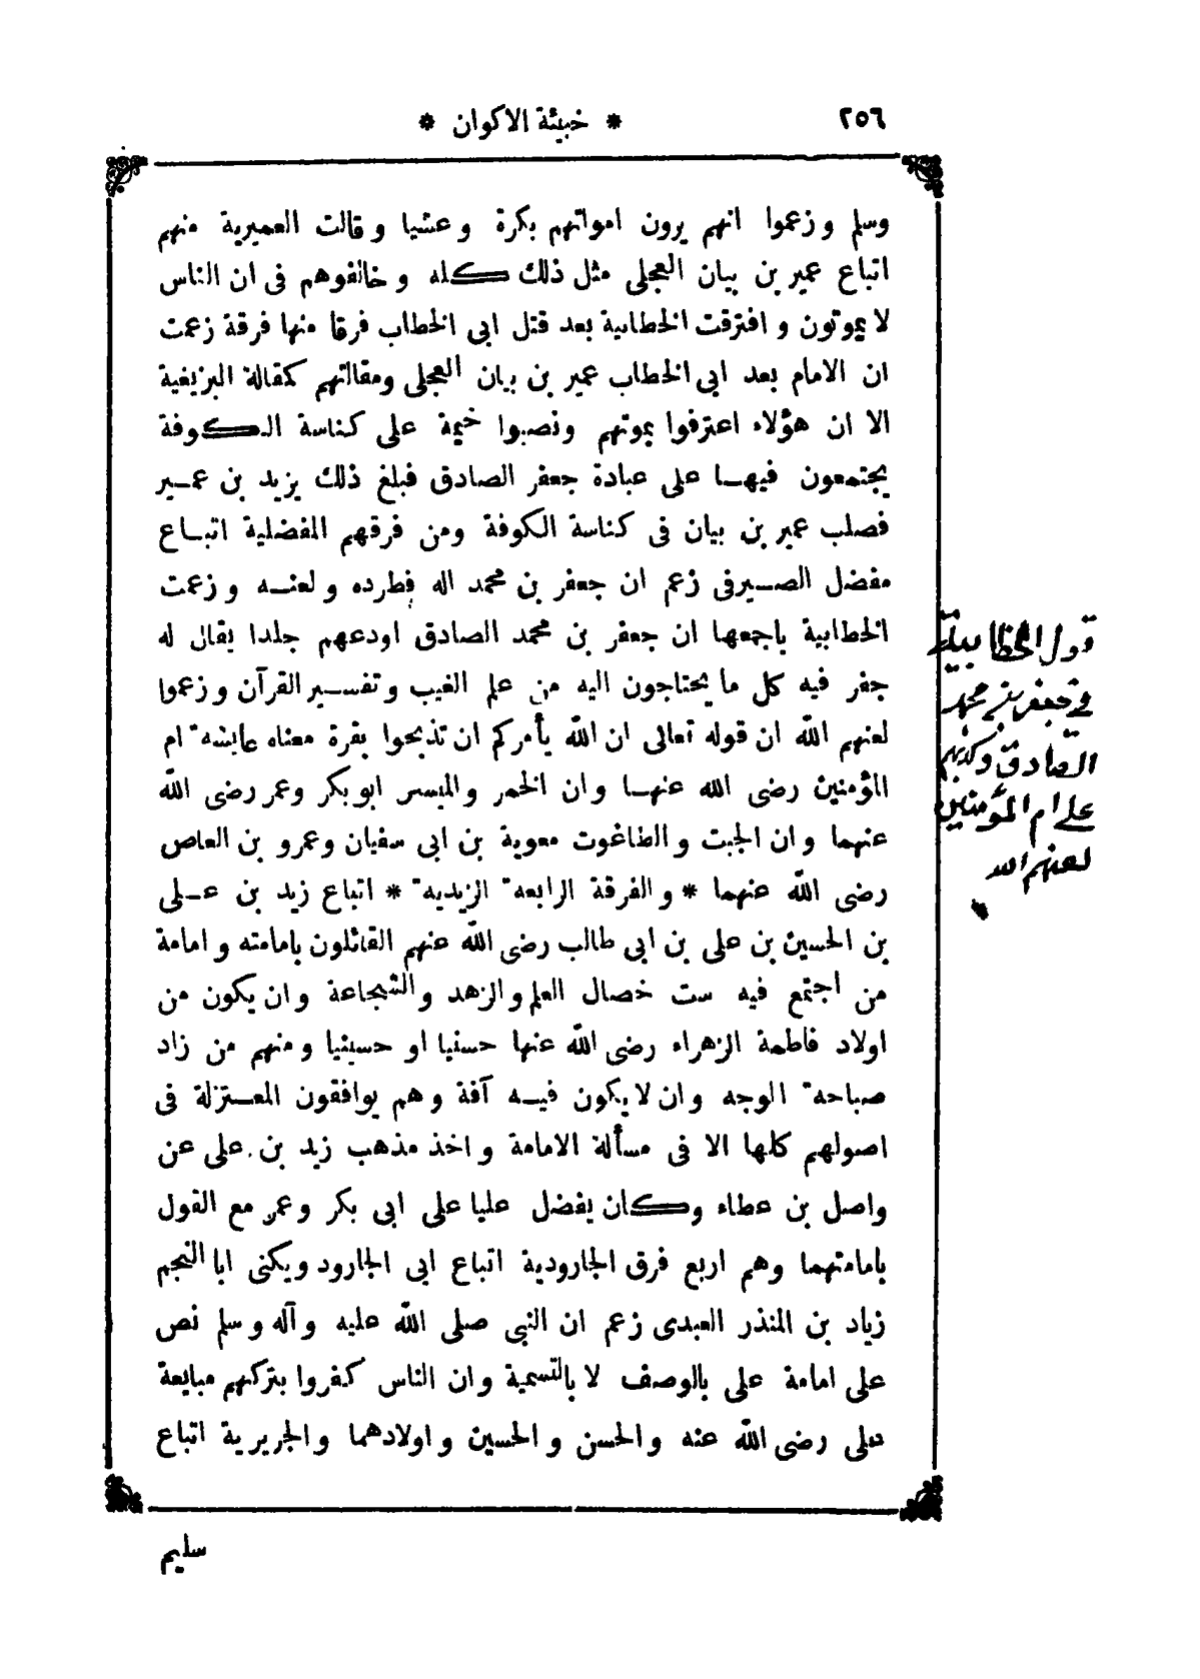 ٢٥٦
* خبيئة الاكوان *
وسلم وزعموا انهم يرون امواتهم بكرة وعشيا وقالت العميرية منهم
اتباع عمير بن بيان العجلى مثل ذلك كله وخالفوهم فى ان الناس
لا يموتون وافترقت الخطابية بعد قتل ابى الخطاب فرقا منها فرقة زعمت
ان الامام بعد ابى الخطاب عمير بن بيان العجلى ومقالتهم كمقالة البزيغية
الا ان هؤلاء اعترفوا بموتهم ونصبوا خيمة على كناسة الكوفة
يجتمعون فيها على عبادة جعفر الصادق فبلغ ذلك يزيد بن عمير
فصلب عمير بن بيان فى كناسة الكوفة ومن فرقهم المفضلية اتباع
مفضل الصيرفى زعم ان جعفر بن محمد اله فطرده ولعنه وزعمت
الخطابية باجمعها ان جعفر بن محمد الصادق اودعهم جلدا يقال له
جفر فيه كل ما يحتاجون اليه من علم الغيب وتفسير القرآن وزعموا
لعنهم الله ان قوله تعالى ان الله يأمركم ان تذبحوا بقرة معناه عايشه ام
المؤمنين رضى الله عنها وان الخمر والميسر ابو بكر وعمر رضى الله
عنهما وان الجبت والطاغوت معوية بن ابى سفيان وعمرو بن العاص
رضى الله عنهما * والفرقة الرابعه الزيديه * اتباع زيد بن على
بن الحسين بن على بن ابى طالب رضى الله عنهم القائلون بامامته وامامة
من اجتمع فيه ست خصال العلم والزهد والشجاعة وان يكون من
اولاد فاطمة الزهراء رضى الله عنها حسنيا او حسينيا ومنهم من زاد
صباحه الوجه وان لا يكون فيه آفة وهم يوافقون المعتزلة فى
اصولهم كلها الا فى مسألة الامامة واخذ مذهب زيد بن على عن
واصل بن عطاء وكان يفضل عليا على ابى بكر وعمر مع القول
بامامتهما وهم اربع فرق الجارودية اتباع ابى الجارود ويكنى ابا النجم
زياد بن المنذر العبدى زعم ان النبى صلى الله عليه وآله وسلم نص
على امامة على بالوصف لا بالتسمية وان الناس كفروا بتركهم مبايعة
على رضى الله عنه والحسن والحسين واولادهما والجريرية اتباع
سليم
قول الخطابية
فى جعفر بن محمد
الصادق وكذبهم
على ام المؤمنين
لعنهم الله